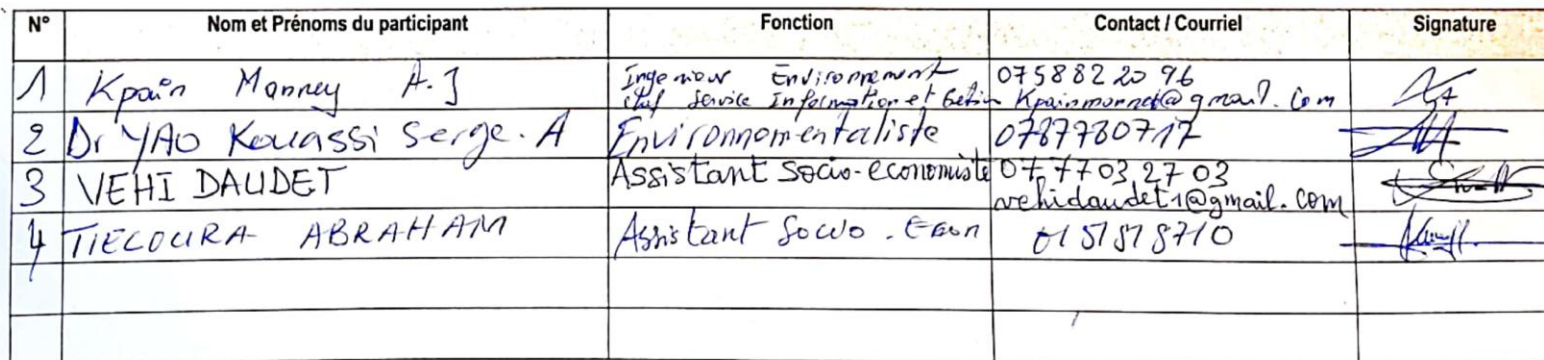 N° Nom et Prénoms du participant Fonction Contact / Courriel Signature
1 Kpain Manney A.J Ingenieur Environnement 07 58 82 20 96
chef Service Information et @gmail.com
2 Dr YAO Kouassi Serge. A Environnementaliste 0787780717
3 VEHI DAUDET Assistant socio-economiste 07 77 03 27 03
vehidaudet1@gmail.com
4 TIECOURA ABRAHAM Assistant Socio. Econ 01 51 51 8710